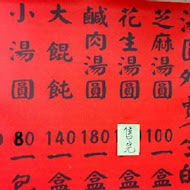 芝麻湯圓 100 一盒
花生湯圓 售完 一盒
鹹肉湯圓 180 一盒
大餛飩 140 一盒
小湯圓 80 一包